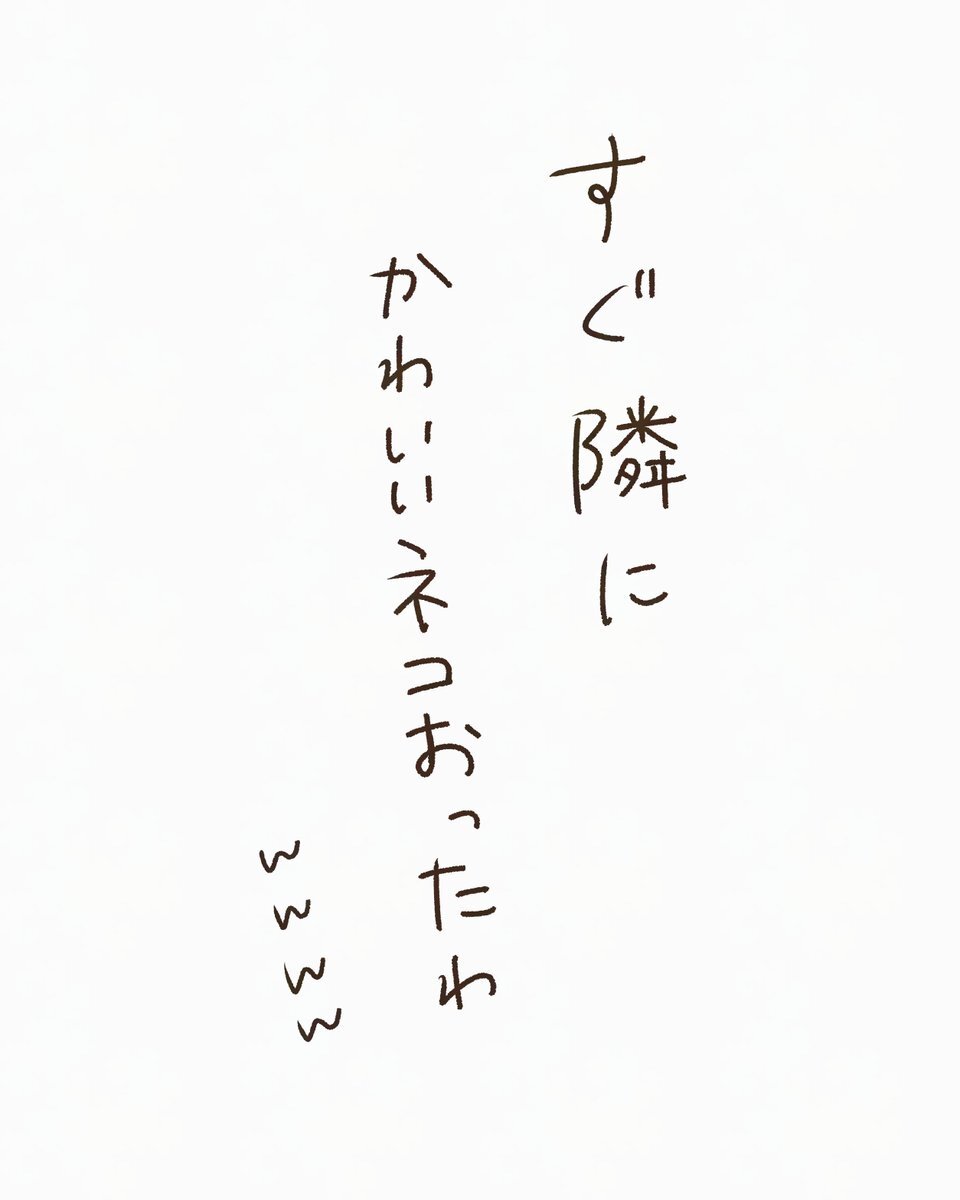 すぐ隣に
かわいいネコおったわ
wwww